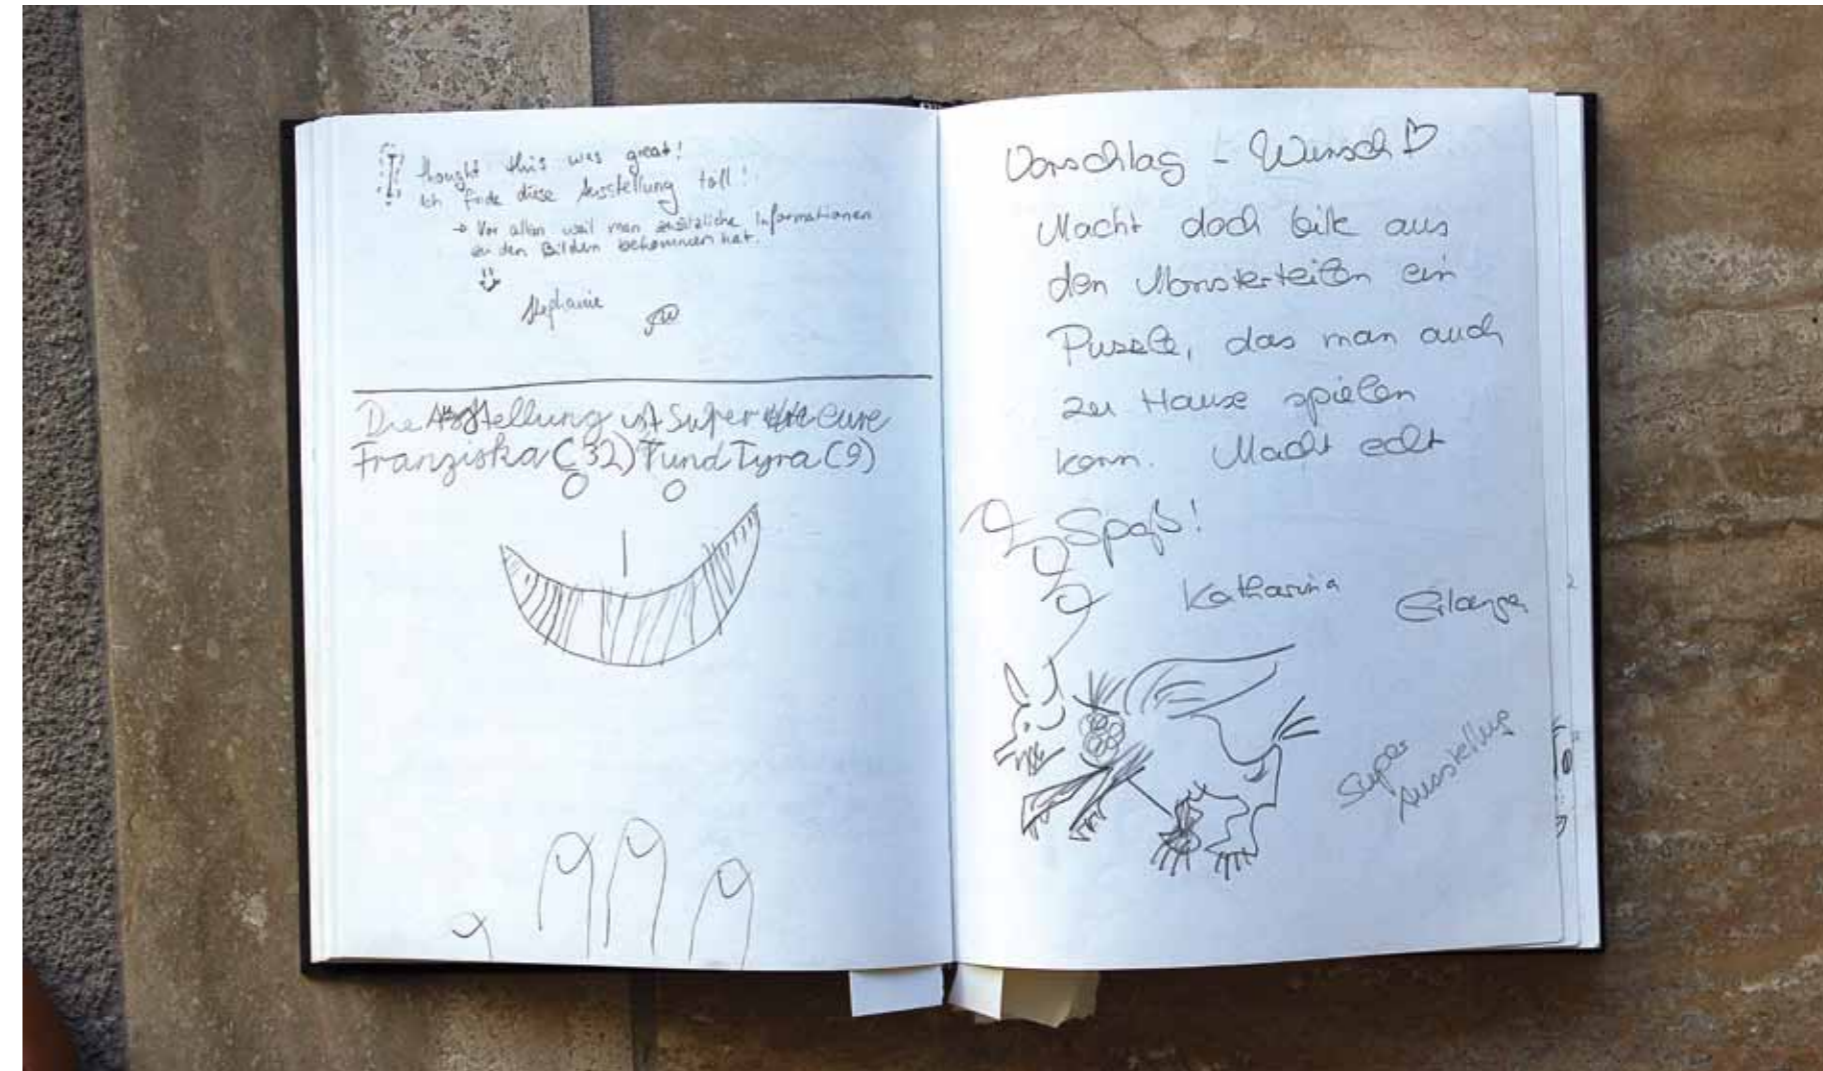 I thought this was great!
Ich finde diese Ausstellung toll!
→ Vor allem weil man zusätzliche Informationen
zu den Bildern bekommen hat.
Stephanie
Die Ausstellung ist Super eure
Franziska (32) und Tyra (9)
Vorschlag - Wunsch ♡
Macht doch bitte aus
den Monsterteilen ein
Pussle, das man auch
zu Hause spielen
kann. Macht echt
Spaß!
Katharina Erlangen
Super
Ausstellung